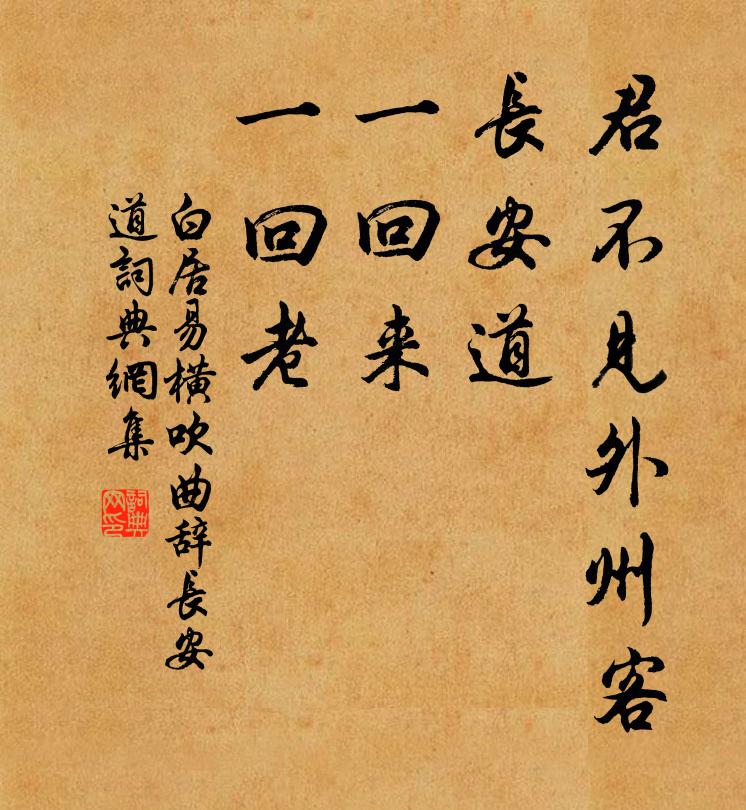 君不見外州客
長安道
一回来
一回老
白居易橫吹曲辞長安
道詞典網集
詞典网印